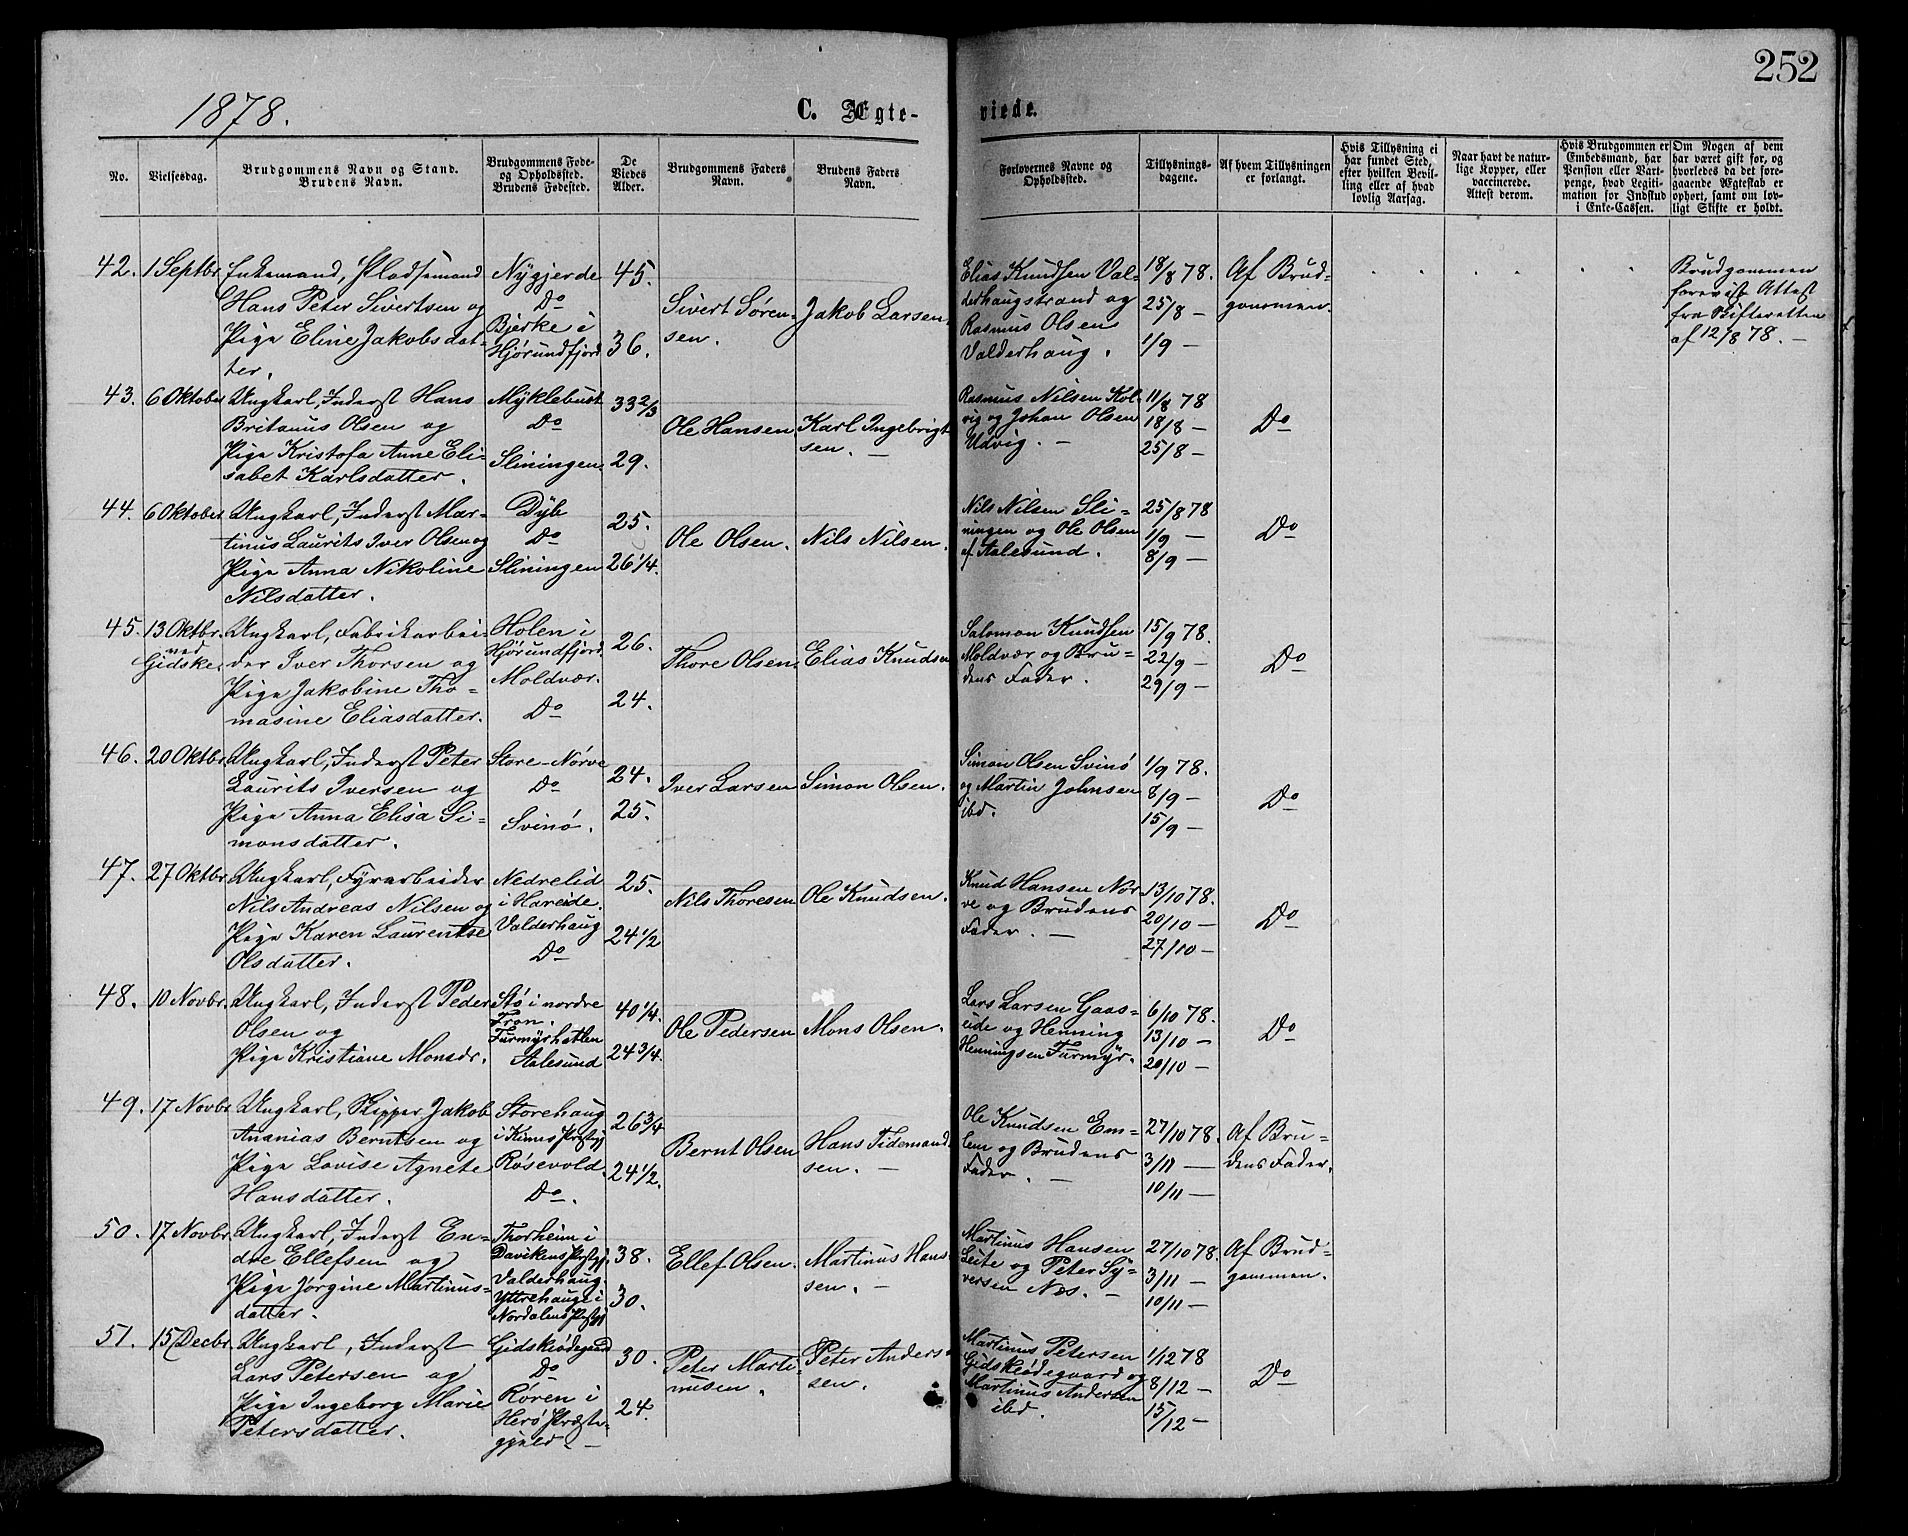 252
1878.
C. Ægte-
viede.
No.
Vielsesdag.
Brudgommens Navn og Stand.
Brudens Navn.
Brudgommens Føde-
og Opholdssted.
Brudens Fødested.
De
Viedes
Alder.
Brudgommens Faders
Navn.
Brudens Faders
Navn.
Forlovernes Navne og
Opholdssted.
Tillysnings-
dagene.
Af hvem Tillysningen
er forlangt.
Hvis Tillysning ei
har fundet Sted,
efter hvilken Bevil-
ling eller af hvad
lovlig Aarsag.
Naar havt de natur-
lige Kopper, eller
vaccinerede.
Attest derom.
Hvis Brudgommen er
Embedsmand, har
Pension eller Vart-
penge, hvad Legiti-
mation for Indskud
i Enke-Cassen.
Om Nogen af dem
har været gift før, og
hvorledes da det fore-
gaaende Ægteskab er
ophørt, samt om lov-
ligt Skifte er holdt.
42. 1 Septbr.
Enkemand, Pladsemand
Hans Peter Sivertsen og
Pige Eline Jakobsdat-
ter.
Nygjerde
Do
Bjerke i
Hjørundfjord
45.
36.
Sivert Søren-
sen.
Jakob Larsen.
Elias Knudsen Val-
derhaugstrand og
Rasmus Olsen
Valderhaug.
18/8 78.
25/8 —
1/9 —
Af Brud-
gommen.
Brudgommen
forevist Attest
fra Skifteretten
af 12/8 78. —
43. 6 Oktober
Ungkarl, Inderst Hans
Britanus Olsen og
Pige Kristofa Anne Eli-
sabet Karlsdatter.
Myklebust
Do
Sliningen
33 2/3
29.
Ole Hansen
Karl Ingebrigt
sen. —
Rasmus Nilsen Kol-
vig og Johan Olsen
Udvig. —
11/8 78
18/8 —
25/8 —
Do
44. 6 Oktober
Ungkarl, Inderst Mar-
tinus Laurits Iver Olsen og
Pige Anna Nikoline
Nilsdatter.
Dyb
Do
Sliningen
25.
26 1/4.
Ole Olsen.
Nils Nilsen.
Nils Nilsen Sli-
ningen og Ole Olsen
af Aalesund.
25/8 78
1/9 —
8/9 —
Do
45. 13 Oktbr.
ved
Gidske.
Ungkarl, Fabrikarbei-
der Iver Thorsen og
Pige Jakobine Tho-
masine Eliasdatter.
Holen i
Hjørundfjord
Moldvær.
Do
26.
24.
Thore Olsen
Elias Knudsen
Salomon Knudsen
Moldvær og Bru-
dens Fader.
15/9 78.
22/9 —
29/9 —
Do
46. 20 Oktbr.
Ungkarl, Inderst Peter
Laurits Iversen og
Pige Anna Elisa Si-
monsdatter.
Store-Nørve
Do
Svinø.
24.
25.
Iver Larsen
Simon Olsen.
Simon Olsen Svinø
og Martin Johnsen
ibd.
1/9 78.
8/9 —
15/9 —
Do
47. 27 Oktbr.
Ungkarl, Fyrarbeider
Nils Andreas Nilsen og
Pige Karen Laurentse
Olsdatter.
Nedrelid
i Hareide.
Valderhaug
Do
25.
24 1/2
Nils Thoresen
Ole Knudsen.
Knud Hansen Nor-
ve og Brudens
Fader. —
13/10 78.
20/10 —
27/10 —
Do
48. 10 Novbr.
Ungkarl, Inderst Peder
Olsen og
Pige Kristiane Monsdr.
Stø i nordre
Fron.
Furmyrhatlen
Aalesund
40 1/4.
24 3/4.
Ole Pedersen
Mons Olsen.
Lars Larsen Gaas-
eide og Henning
Henningsen Furmyr.
6/10 78.
13/10 —
20/10 —
Do
49. 17 Novbr.
Ungkarl, Skipper Jakob
Ananias Berntsen og
Pige Lovise Agnete
Hansdatter.
Storehaug
i Kinns Præstgj
Røsevold.
Do.
26 3/4
24 1/2.
Bernt Olsen
Hans Tidemand
sen. —
Ole Knudsen Em-
lem og Brudens
Fader. —
27/10 78.
3/11 —
10/11 —
Af Bru-
dens Fader.
50. 17 Novbr.
Ungkarl, Inderst En-
dre Ellefsen og
Pige Jørgine Martinus-
datter.
Thorheim i
Davikens Præstgj.
Valderhaug.
Yttrehauge i
Nordalens Præstgj
38.
30.
Ellef Olsen.
Martinus Hans
sen. —
Martinus Hansen
Leite og Peter Sy-
versen Næs. —
27/10 78.
3/11 —
10/11 —
Af Brud-
gommen.
51. 15 Decbr.
Ungkarl, Inderst
Lars Petersen og
Pige Ingeborg Marie
Petersdatter.
Gidskeødegaard
Do
Røren i
Herø Præste-
gjeld. —
30.
24.
Peter Marti-
nusen.
Peter Anders-
sen.
Martinus Petersen
Gidskeødegaard og
Martinus Andersen
ibd.
1/12 78
8/12 —
15/12 —
Do